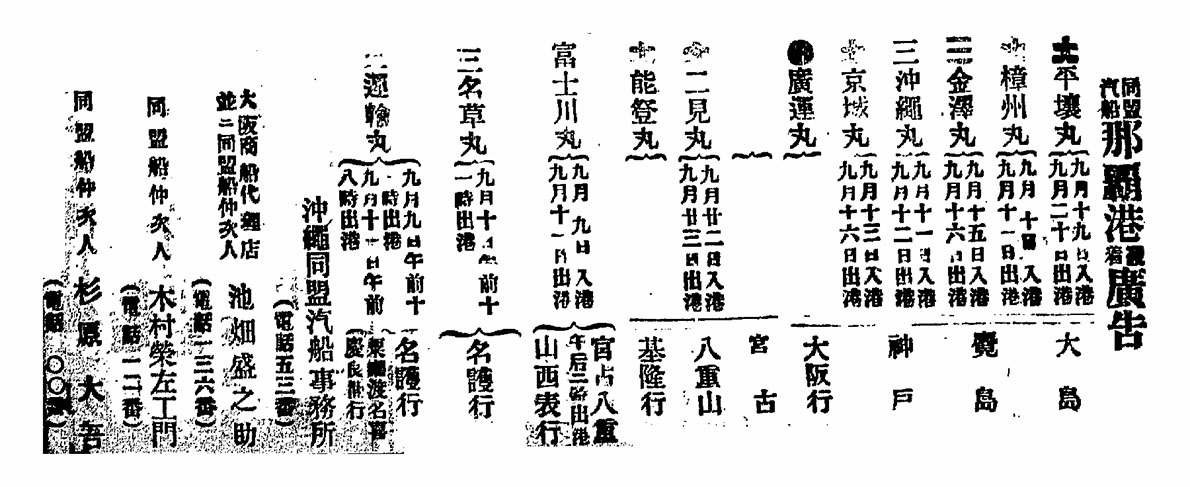 同盟汽船那覇港發着廣告
平壤丸
九月十九日入港
九月二十日出港
樟州丸
九月十日入港
九月十一日出港
三金澤丸
九月十五日入港
九月十六日出港
三沖繩丸
九月十一日入港
九月十二日出港
京城丸
九月十三日入港
九月十六日出港
廣運丸
大島
鹿島
神戸
大阪行
二見丸
九月廿二日入港
九月廿三日出港
能登丸
宮古
八重山
基隆行
富士川丸
九月九日入港
九月十一日出港
宮古八重
午后二時出港
山西表行
三名草丸
九月十日午前十
一時出港
名護行
運輸丸
九月九日午前十
一時出港
名護行
九月十一日午前
八時出港
粟國渡名喜
慶良間行
沖繩同盟汽船事務所
(電話五三番)
大阪商船代理店
並ニ同盟船仲次人
池畑盛之助
(電話一三六番)
同盟船仲次人
木村榮左工門
(電話一二番)
同盟船仲次人
杉原大吾
(電話一〇〇番)